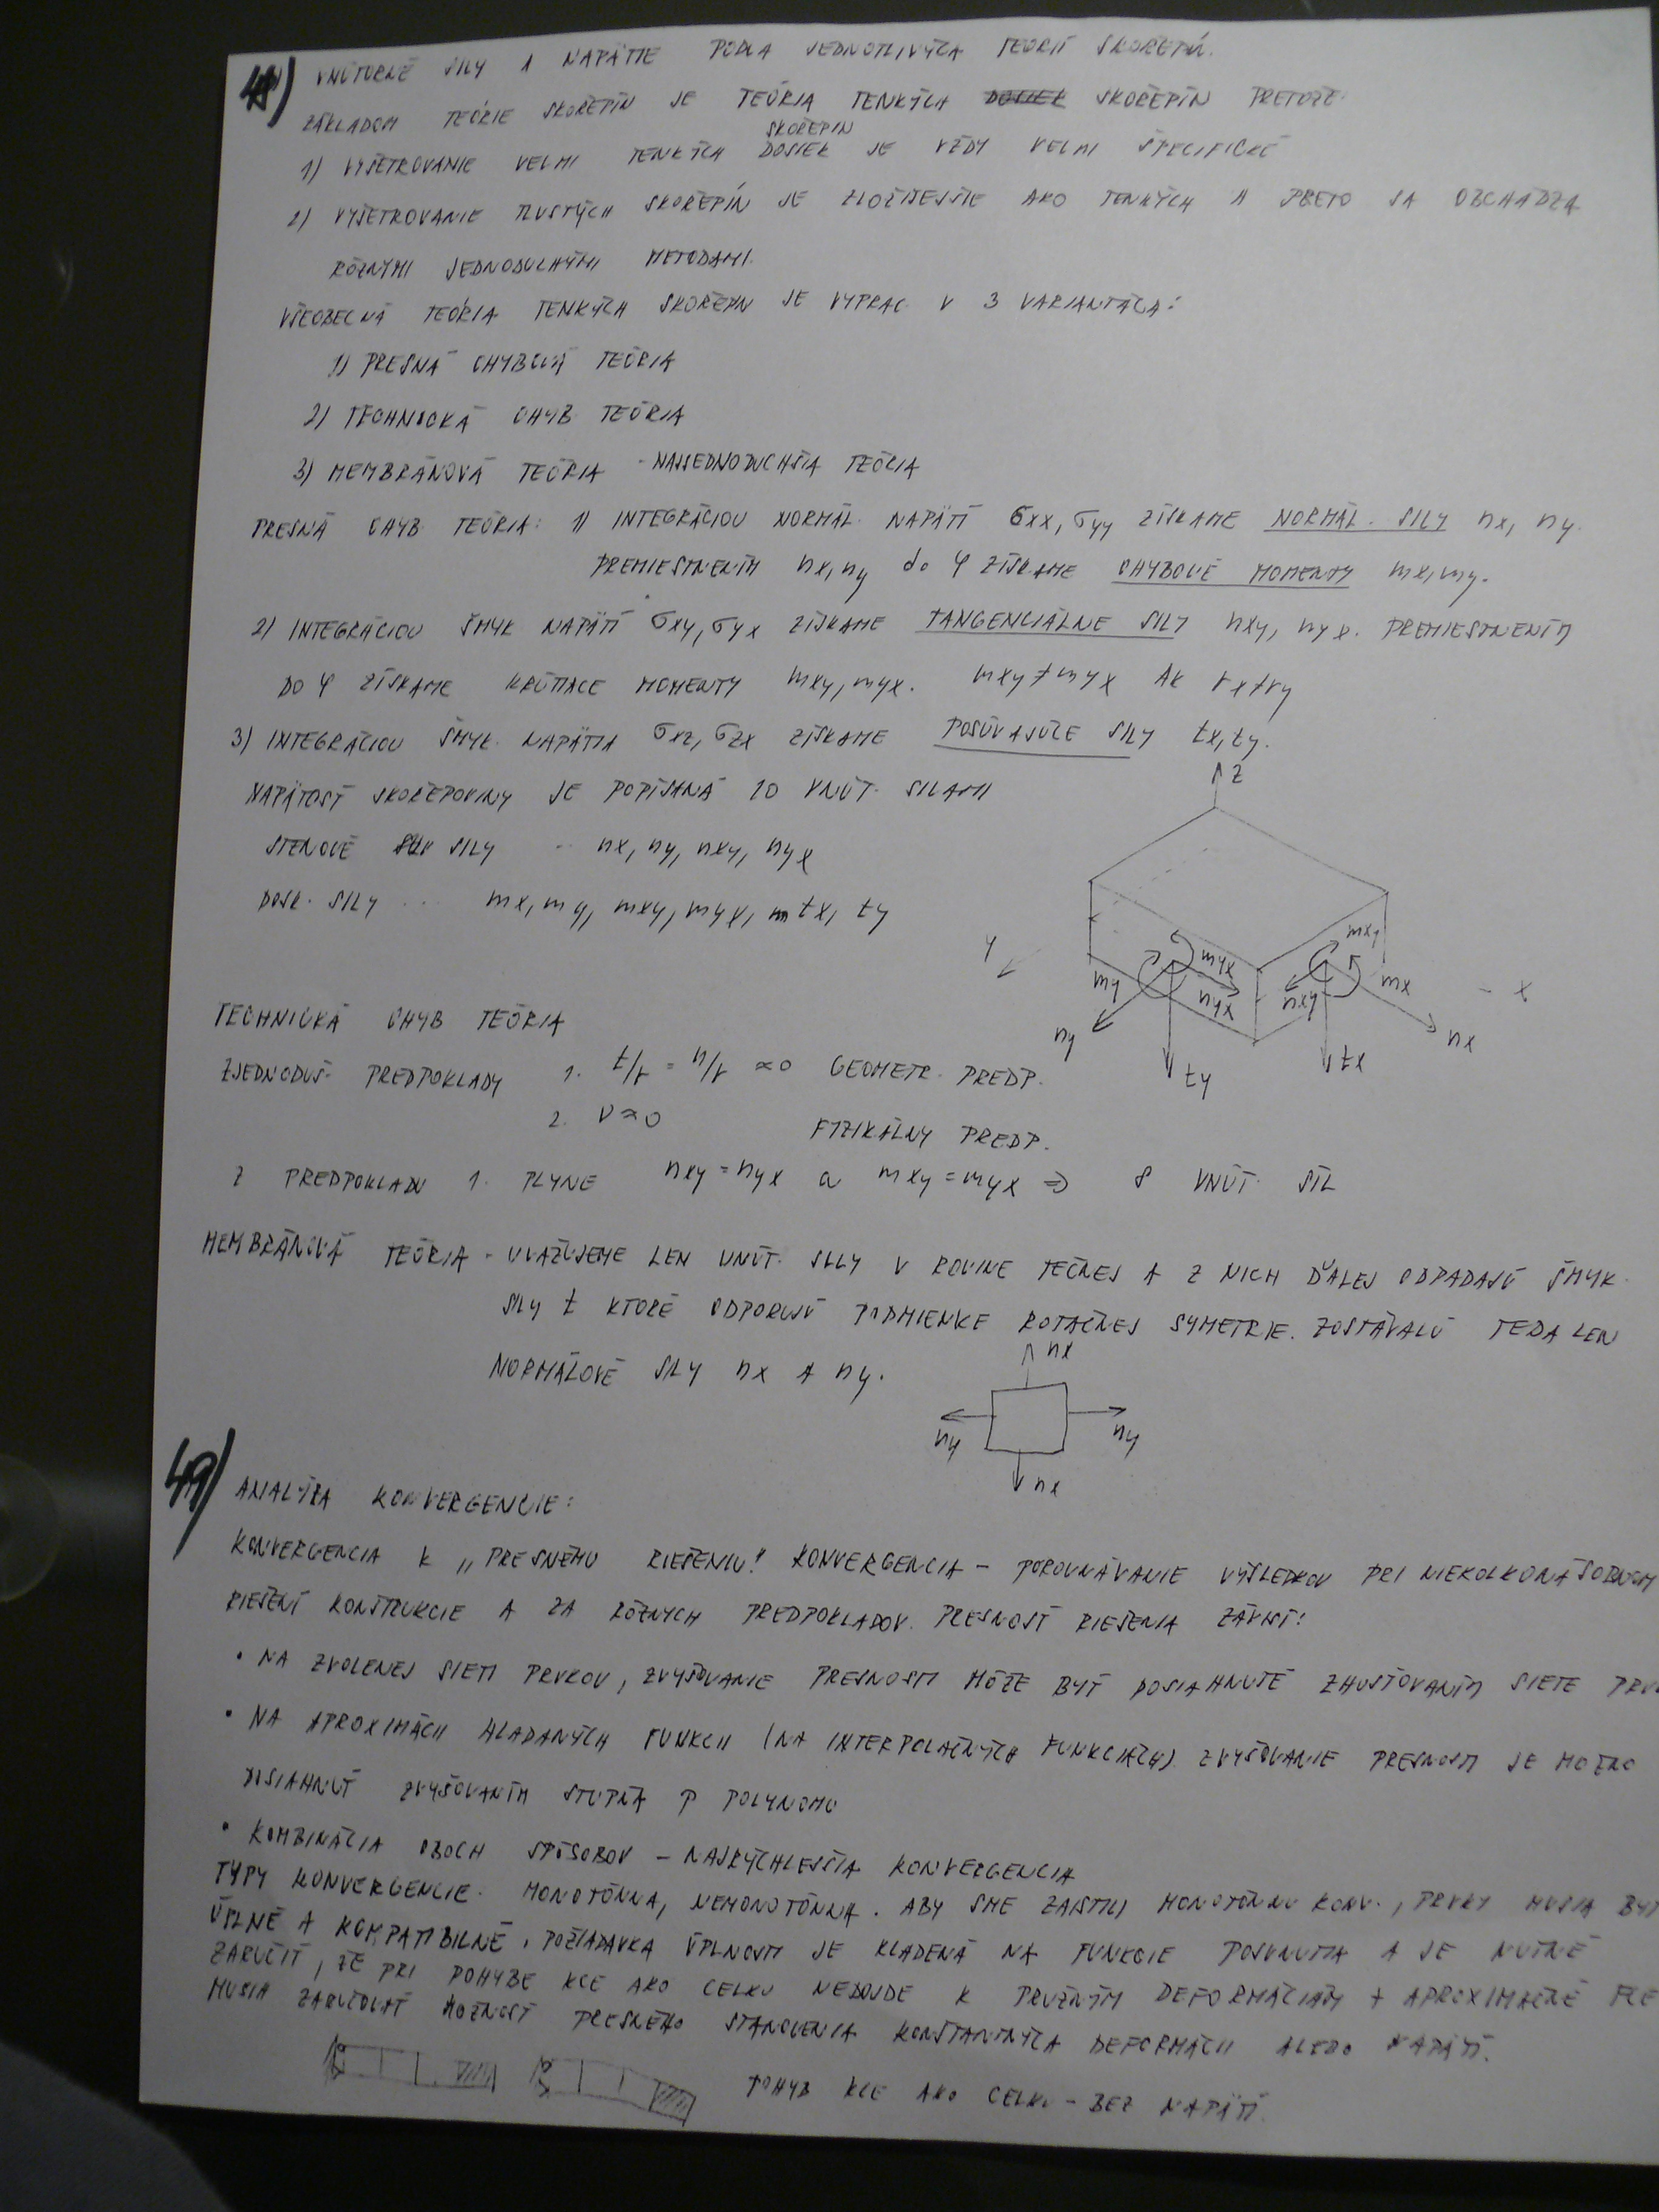 48) VNÚTORNÉ SILY A NAPÄTIE PODĽA JEDNOTLIVÝCH TEORIÍ SKOŘEPÍN.
ZÁKLADOM TEÓRIE SKOŘEPÍN JE TEÓRIA TENKÝCH DOSIEK SKOŘEPÍN PRETOŽE:
SKOŘEPIN
1) VYŠETROVANIE VEĽMI TENKÝCH DOSIEK JE VŽDY VEĽMI ŠPECIFICKÉ
2) VYŠETROVANIE TLUSTÝCH SKOŘEPÍN JE ZLOŽITEJŠIE AKO TENKÝCH A PRETO SA OBCHÁDZA
RÔZNYMI JEDNODUCHÝMI METÓDAMI.
VŠEOBECNÁ TEÓRIA TENKÝCH SKOŘEPÍN JE VYPRAC. V 3 VARIANTÁCH:
1) PRESNÁ OHYBOVÁ TEÓRIA
2) TECHNICKÁ OHYB TEÓRIA
3) MEMBRÁNOVÁ TEÓRIA - NAJJEDNODUCHŠIA TEÓRIA
PRESNÁ OHYB TEÓRIA: 1) INTEGRÁCIOU NORMÁL. NAPÄTÍ σxx, σyy ZÍSKAME NORMÁL. SILY nx, ny.
PREMIESTNENÍM nx, ny do φ ZÍSKAME OHYBOVÉ MOMENTY mx, my.
2) INTEGRÁCIOU ŠMYK NAPÄTÍ σxy, σyx ZÍSKAME TANGENCIÁLNE SILY nxy, nyx. PREMIESTNENÍM
DO φ ZÍSKAME KRÚTIACE MOMENTY mxy, myx. mxy ≠ myx AK rx ≠ ry
3) INTEGRÁCIOU ŠMYK. NAPÄTIA σxz, σzx ZÍSKAME POSÚVAJÚCE SILY tx, ty.
NAPÄTOSŤ SKOŘEPOVINY JE POPÍSANÁ 10 VNÚT. SILAMI
STENOVÉ SILY .. nx, ny, nxy, nyx
DOSK. SILY ... mx, my, mxy, myx, tx, ty
z
y
x
mxy
myx
my
nyx
nxy
mx
ny
nx
ty
tx
TECHNICKÁ OHYB TEÓRIA
ZJEDNODUŠ. PREDPOKLADY 1. t/r = h/r ≈ 0 GEOMETR. PREDP.
2. ν ≈ 0 FYZIKÁLNY PREDP.
Z PREDPOKLADU 1. PLYNIE nxy = nyx a mxy = myx ⇒ 8 VNÚT. SÍL
MEMBRÁNOVÁ TEÓRIA - UVAŽUJEME LEN VNÚT. SILY V ROVINE TEČNEJ A Z NICH ĎALEJ ODPADAJÚ ŠMYK.
SILY t KTORÉ ODPORUJÚ PODMIENKE ROTAČNEJ SYMETRIE. ZOSTÁVAJÚ TEDA LEN
NORMÁLOVÉ SILY nx A ny.
nx
ny
ny
nx
49) ANALÝZA KONVERGENCIE:
KONVERGENCIA K „PRESNÉMU RIEŠENIU". KONVERGENCIA - POROVNÁVANIE VÝSLEDKOV PRI NIEKOĽKONÁSOBNOM
RIEŠENÍ KONŠTRUKCIE A ZA RÔZNYCH PREDPOKLADOV. PRESNOSŤ RIEŠENIA ZÁVISÍ:
• NA ZVOLENEJ SIETI PRVKOV, ZVYŠOVANIE PRESNOSTI MÔŽE BYŤ DOSIAHNUTÉ ZHUSŤOVANÍM SIETE
• NA APROXIMÁCII HĽADANÝCH FUNKCIÍ (NA INTERPOLAČNÝCH FUNKCIÁCH) ZVYŠOVANIE PRESNOSTI JE MOŽNO
DOSIAHNUŤ ZVYŠOVANÍM STUPŇA P POLYNOMU
• KOMBINÁCIA OBOCH SPÔSOBOV - NAJRÝCHLEJŠIA KONVERGENCIA
TYPY KONVERGENCIE: MONOTÓNNA, NEMONOTÓNNA. ABY SME ZAISTILI MONOTÓNNU KONV., PRVKY MUSIA BYŤ
ÚPLNÉ A KOMPATIBILNÉ, POŽIADAVKA ÚPLNOSTI JE KLADENÁ NA FUNKCIE POSUNUTIA A JE NUTNÉ
ZARUČIŤ, ŽE PRI POHYBE KCE AKO CELKU NEDOJDE K PRUŽNÝM DEFORMÁCIÁM + APROXIMAČNÉ FCE
MUSIA ZARUČOVAŤ MOŽNOSŤ PRESNÉHO STANOVENIA KONŠTANTNÝCH DEFORMÁCII ALEBO NAPÄTÍ.
POHYB KCE AKO CELKU - BEZ NAPÄTÍ